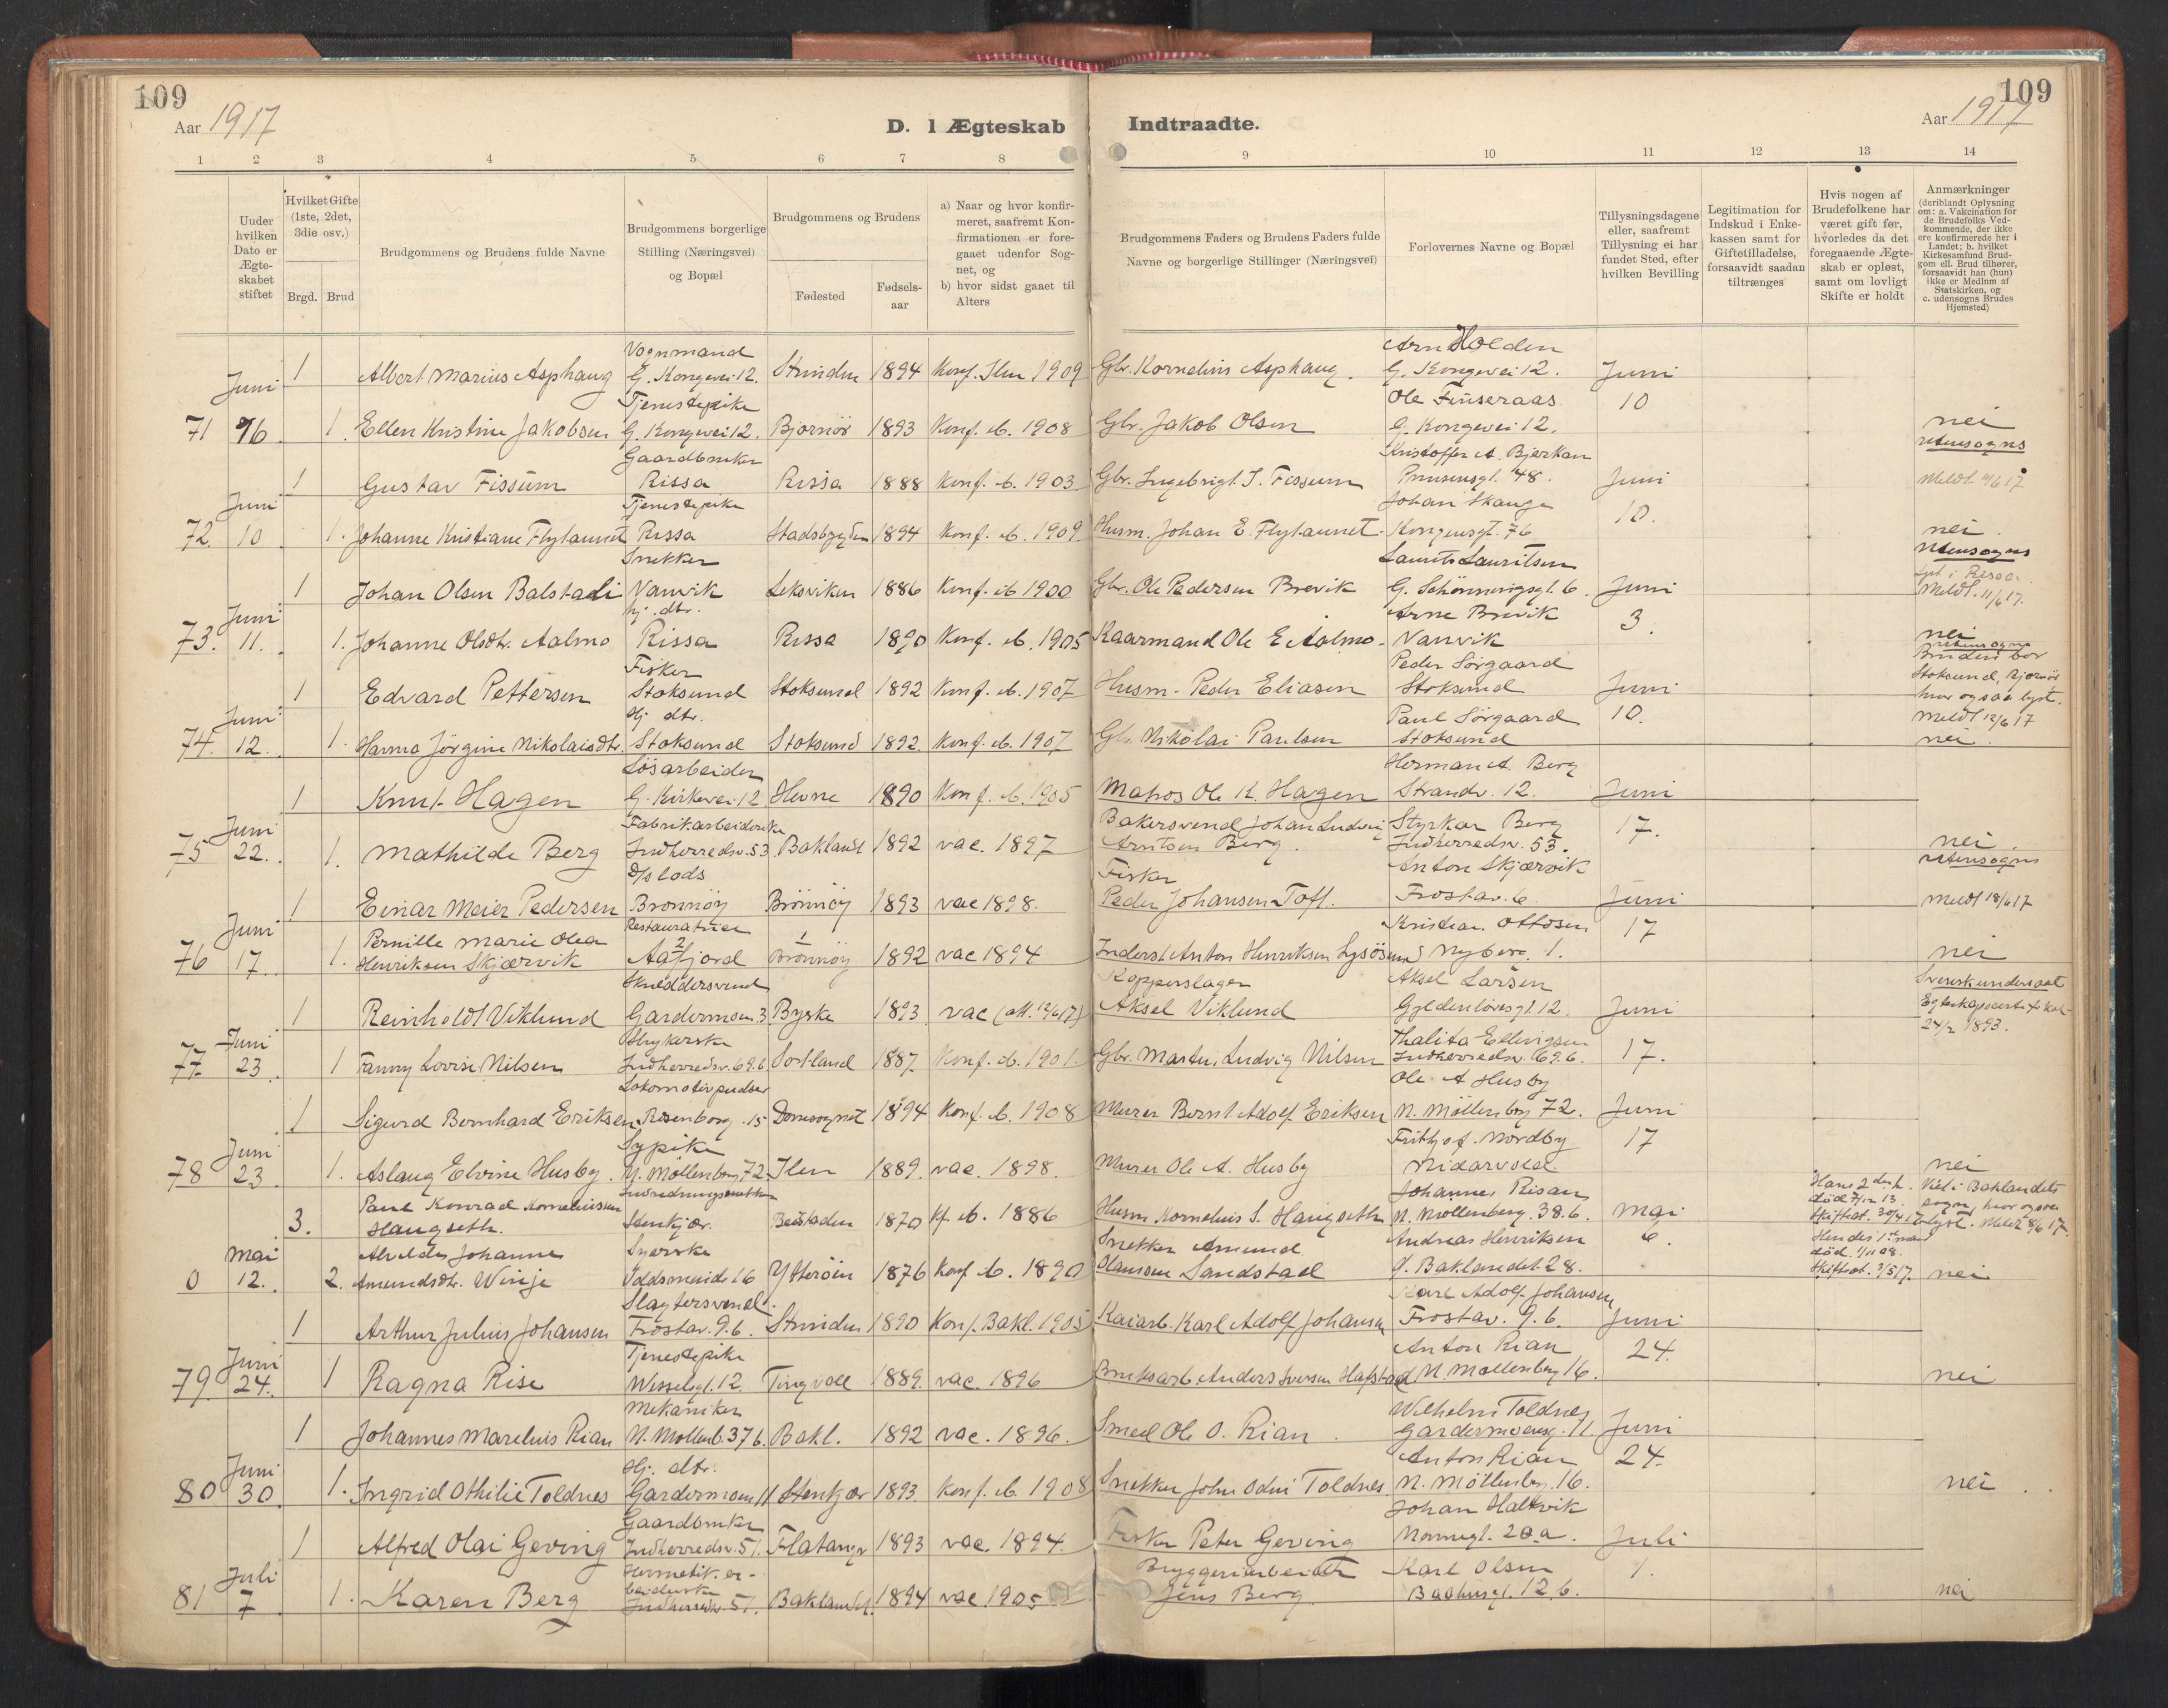 109
109
Aar 1917
D. I Ægteskab Indtraadte.
Aar 1917
1 2 3 4 5 6 7 8 9 10 11 12 13 14
Uuder hvilken Dato er Ægte-skabet stiftet
Hvilket Gifte (1ste, 2det, 3die osv.)
Brgd. Brud
Brudgommens og Brudens fulde Navne
Brudgommens borgerlige Stilling (Næringsvei) og Bopæl
Brudgommens og Brudens
Fødested
Fødsels-aar
a) Naar og hvor konfir-meret, saafremt Kon-firmationen er fore-gaaet udenfor Sog-net, og
b) hvor sidst gaaet til Alters
Brudgommens Faders og Brudens Faders fulde Navne og borgerlige Stillinger (Næringsvei)
Forlovernes Navne og Bopæl
Tillysningsdagene eller, saafremt Tillysning ei har fundet Sted, efter hvilken Bevilling
Legitimation for Indskud i Enke-kassen samt for Giftetilladelse, forsaavidt saadan tiltrænges
Hvis nogen af Brudefolkene har været gift før, hvorledes da det foregaaende Ægte-skab er opløst, samt om lovligt Skifte er holdt
Anmærkninger (deriblandt Oplysning om: a. Vakcination for de Brudefolks Ved-kommende, der ikke ere konfirmerede her i Landet; b. hvilket Kirkesamfund Brud-gom ell. Brud tilhører, forsaavidt han (hun) ikke er Medlnm af Statskirken, og c. udensogns Brudes Hjemsted)
Vognmand Arn Holden
Juni 1 Albert Marius Asphaug G. Kongevei 12. Strinden 1894 Konf. Ilen 1909 Gbr. Kornelius Asphaug. G. Kongevei 12. Juni
Tjenestepike Ole Finseraas 10
71 16 1. Ellen Kristine Jakobsen G. Kongevei 12. Bjørnör 1893 Konf. ib. 1908 Gbr. Jakob Olsen G. Kongevei 12. nei
Gaardbruker Kristoffer A. Bjerkan utensogns
1 Gustav Fissum Rissa Rissa 1888 Konf. ib. 1903 Gbr. Ingebrigt J. Fissum 48. Juni Meldt 11/6 17
Juni Tjenestepike Johan Skauge 10.
72 10 1. Johanne Kristiane Flytaunet Rissa Stadsbygden 1894 Konf. ib. 1909. Husm. Johan E. Flytaunet. Kongensgt. 76 nei.
Snekker Laurits Lauritsen utensogns
1 Johan Olsen Balstad i Vanvik Leksviken 1886 Konf. ib 1900 Gbr. Ole Pedersen Brevik G. Schønningsgt. 6. Juni lyst i Rissa. Meldt. 11/6 17.
Juni hj. dtr. Arne Brevik 3.
73. 11. 1. Johanne Olsdtr. Aalmo Rissa Rissa 1890 Konf. ib. 1905 Kaarmand Ole E Aalmo. Vanvik nei
Fisker Peder Sörgaard utensogns Bruden bor
1 Edvard Pettersen Stoksund Stoksund 1892 Konf. ib. 1907 Husm. Peder Eliasen Stoksund Juni Stoksund, Bjørnör hvor ogsaa lyst.
Juni Hj. dtr. Paul Sörgaard 10. Meldt 12/6 17
74. 12. 1. Hanna Jörgine Nikolaisdtr. Stoksund Stoksund 1892 Konf. ib. 1907 Gbr. Nikolai Paulsen Stoksund nei.
Lösarbeider Herman A. Berg
1 Knut Hagen G. Kirkevei 12 Hevne 1890 Konf. ib. 1905 Matros Ole K. Hagen Strandv. 12. Juni
Juni Fabrikarbeiderske Bakersvend Johan Ludvig Styrkar Berg 17.
75 22. 1. Mathilde Berg Indherredsv. 53. Baklandt 1892 vac. 1897 Arntsen Berg. Indherredsv. 53. nei.
D/s lods Fisker Anton Skjærvik utensogns
1 Einar Meier Pedersen Brønnöy Brønnöy 1893 vac 1898. Peder Johansen Toft. Frostav. 6 Juni Meldt 18/6 17
Juni Pernille Marie Olea Restauratrise 2 1 Kristian Ottosen 17
76 17 1. Henriksen Skjærvik Aafjord Brønnöy 1892 vac 1894 Inderst Anton Henriksen Lysösund Nyberg. 1. nei
Skreddersvend Kopperslager Aksel Larsen Svensk undersaat
1 Reinholdt Viklund Gardermoen 3 Byske 1893 vac (att. 12/6 17) Aksel Viklund Gyldenlövesgt. 12. Juni 24/2 1893.
Juni Strykerske Thalita Edvigsen
77 23 1 Fanny Lovise Nilsen Indherredsv. 69.b Sortland 1887 Konf. ib. 1901. Gbr. Martin Ludvig Nilsen Indherredsv. 69.b. 17.
Lokomotivpudser Ole A Husby
1 Sigurd Bernhard Eriksen Rosenborg. 15 Domsognet 1894 Konf. ib. 1908 Murer Bernt Adolf Eriksen N. Möllenberg 72. Juni
Juni Sypike Frithjof Nordby 17
78 23 1. Aslaug Elvine Husby. N. Möllenberg 72. Ilen 1889. vac. 1898. Murer Ole A. Husby Nidarvold. nei
Paul Konrad Korneliussen Indredningssnekker Johannes Risan Hans 2den h. död 7/12 13. Viet i Baklandets sogn, hvor ogsaa
3. Haugseth. Stenkjær. Beitstaden 1870 kf. ib. 1886 Husm. Kornelius S. Haugseth N. Möllenberg. 38.b. Mai Skifteat. 30/4 17 lyst. Meldt 8/6 17.
Mai Alvilde Johanne Snekker Amund Andreas Henriksen 6. Hendes 1ste mand död. 1/11 08.
0 12. 2. Amundsdtr. Winje 16 Ytteröen 1876 Konf ib. 1890 Olaussen Sandstad V. Baklandet 28. Skifteat. 3/5 17. nei
Slagtersvend. Karl Adolf Johansen
1 Arthur Julius Johansen Frostav. 9.b. Strinden 1890 Konf. Bakl. 1905 Kaiarb. Karl Adolf Johansen Frostav. 9.b. Juni
Juni Tjenestepike Anton Rian 24.
79. 24. 1 Ragna Rise Wesselsgt. 12. Tingvoll 1889. vac. 1896 Bruksarb. Anders Iversen Hafstad N. Möllenberg 16. nei
Mekaniker Wilhelm Toldnes
1 Johannes Marelius Rian N. Mollenb. 37 b. Bakl. 1892 vac. 1896. Smed Ole O. Rian. Gardermoensg. 11. Juni
Juni Hj. dtr. Anton Rian 24.
80 30 1. Ingrid Othilie Toldnes Gardermoen 11 Stenkjær 1893. Konf. ib. 1908 Snekker John Odin Toldnes. N. Möllenberg. 16. nei.
Gaardbruker Johan Haltvik
1 Alfred Olai Geving Indherredsv. 51. Flatanger 1893 vac. 1894. Fisker Peter Geving Nonnegt. 20.a. Juli
Juli Hermetik ar-beiderske Bryggeriarbeider Karl Olsen 1.
81 7 1. Karen Berg Indherredsv. 51. Baklandet. 1894 vac. 1905 Jens Berg. Baahusgt. 12.b. nei